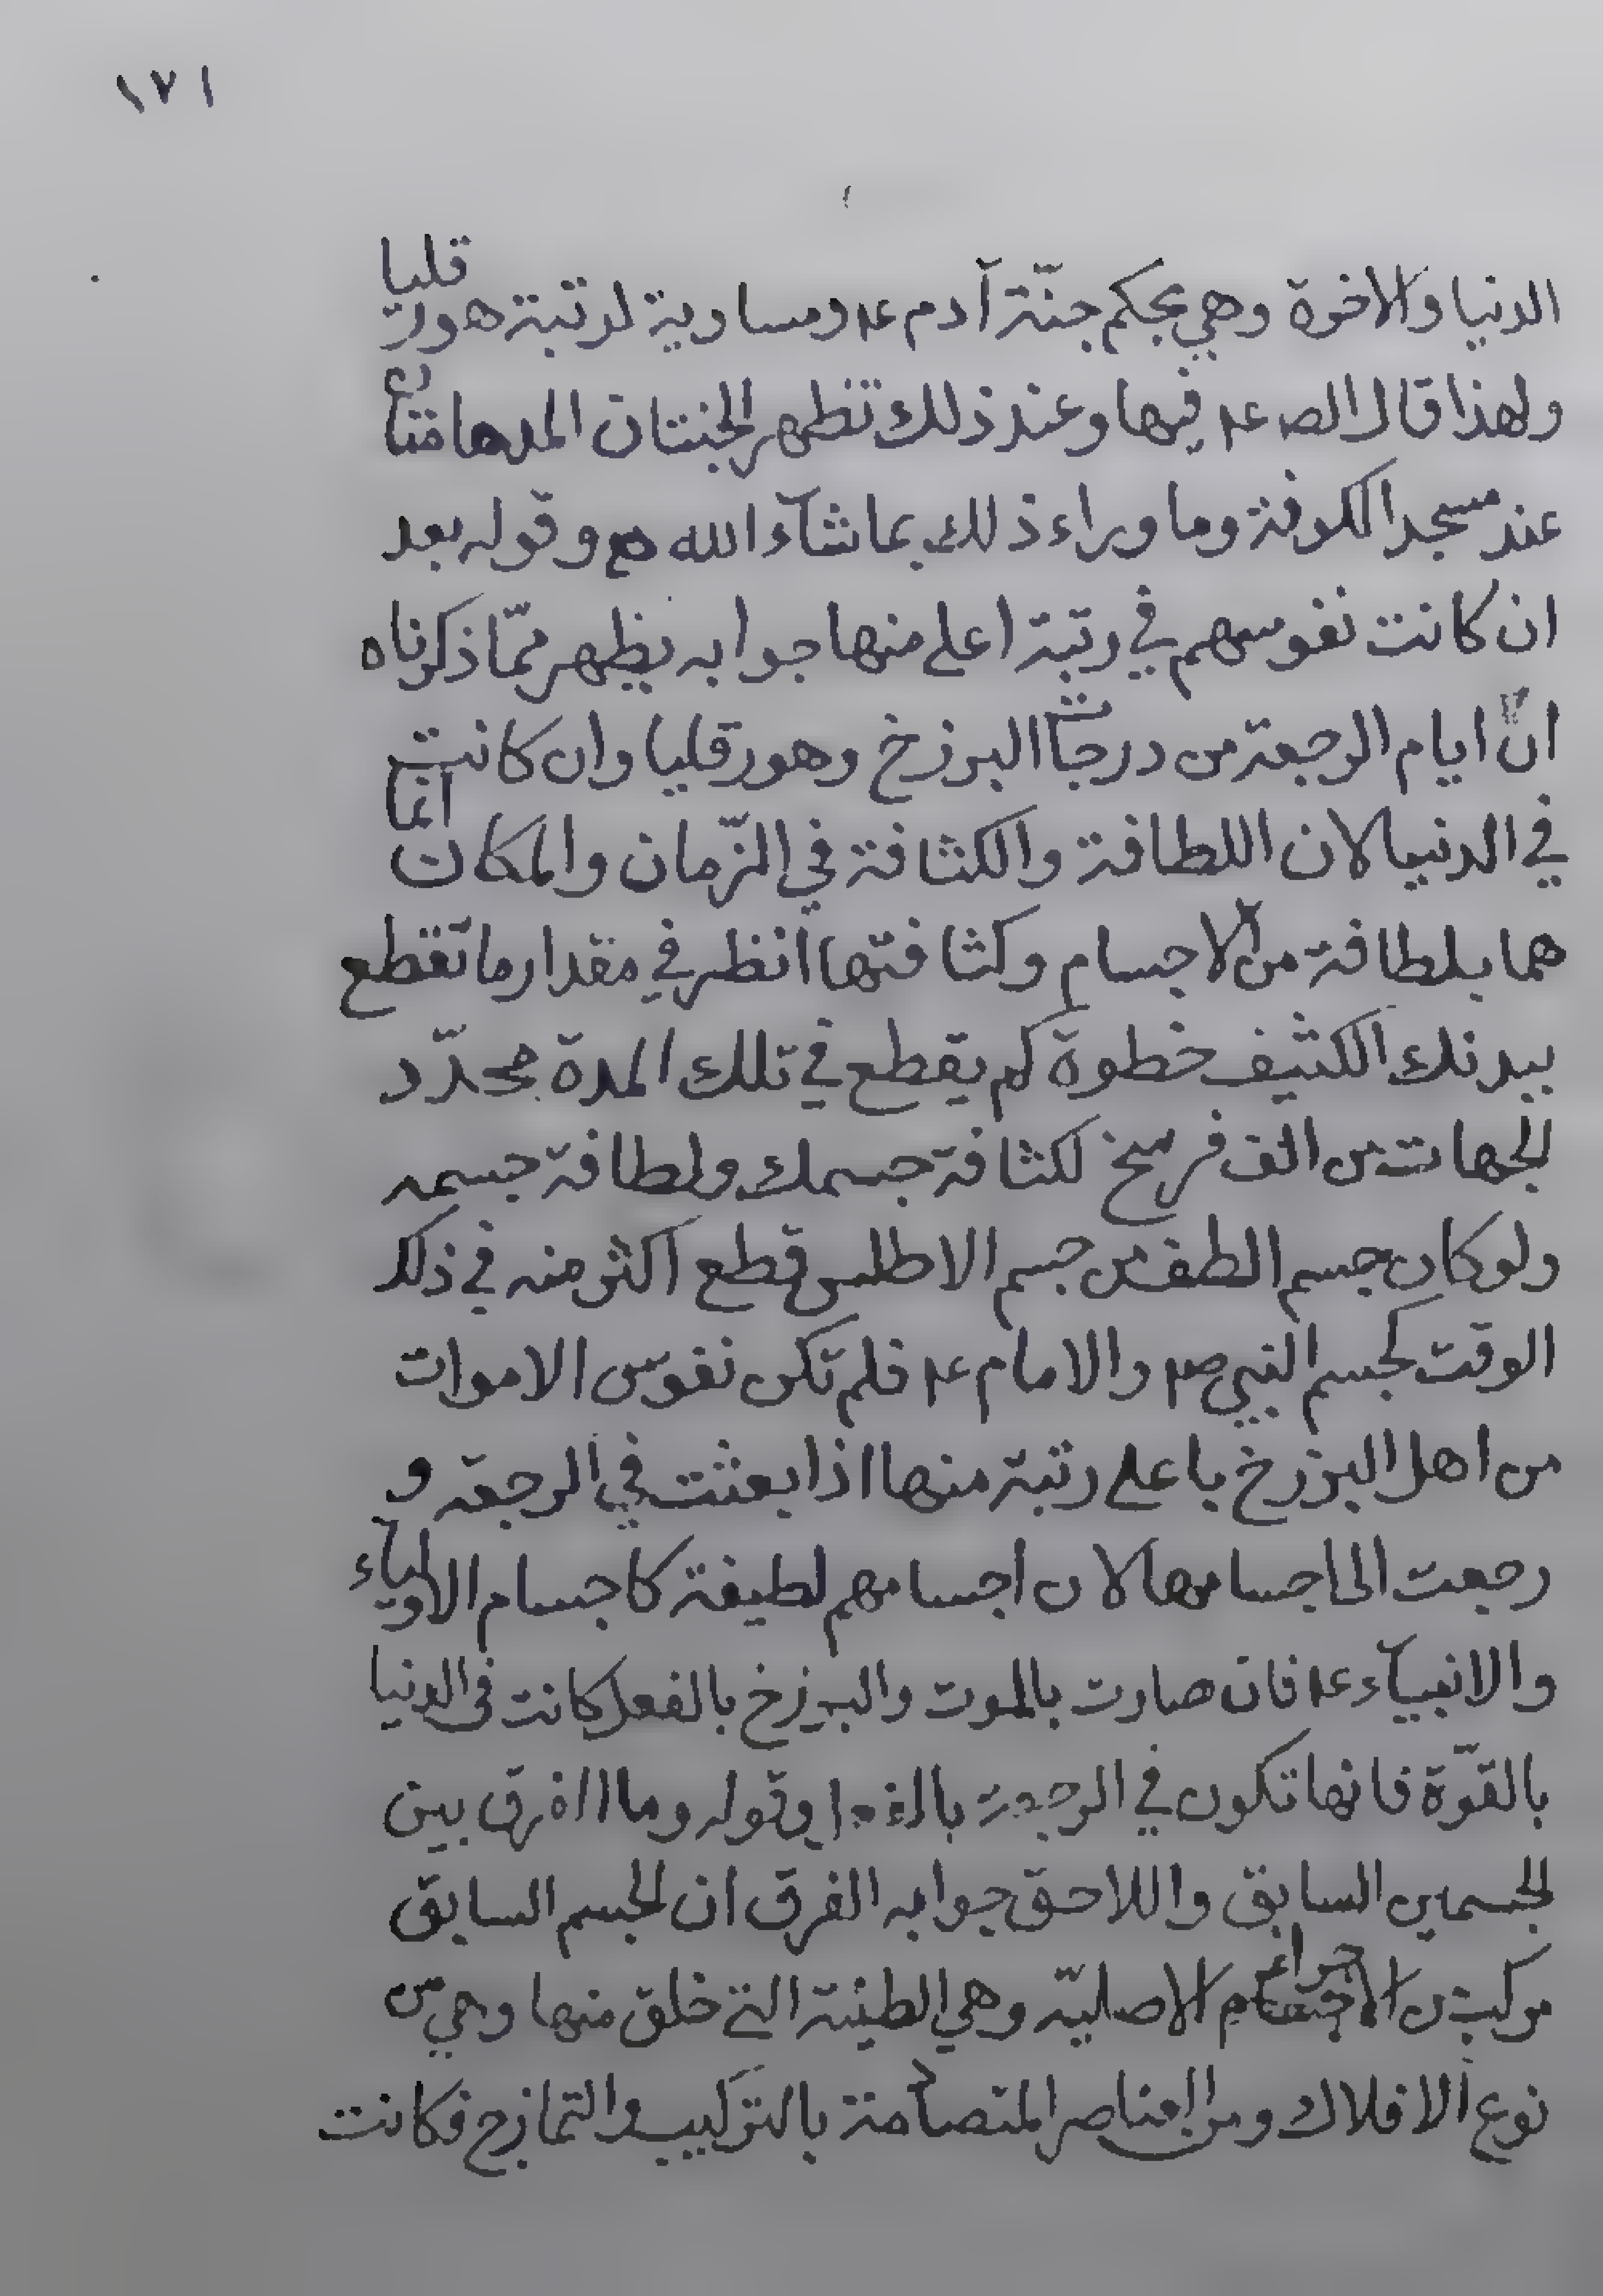 ١٧١
الدنيا والاخرة وهي بحكم جنّة آدم ع۴ ومساوية لرتبة هورقليا
ولهذا قال الص ع۴ فيها وعند ذلك تظهر الجنتان المدهامتان
عند مسجد الكوفة وما وراء ذلك بما شآء الله وقوله بعد
ان كانت نفوسهم في رتبة اعلى منها جوابه يظهر ممّا ذكرناه
انّ ايام الرجعة من درجات البرزخ وهورقليا وان كانت
في الدنيا لان اللطافة والكثافة في الزّمان والمكان انما
هما بلطافة من الاجسام وكثافتها انظر في مقدار ما تقطع
ببدنك الكثيف خطوة كم يقطع في تلك المدة محدّد
الجهات من الف فرسخ لكثافة جسمك ولطافة جسمه
ولو كان جسم الطف من جسم الاطلس قطع اكثر منه في ذلك
الوقت كجسم النبي ص۴ والامام ع۴ فلم تكن نفوس الاموات
من اهل البرزخ باعلى رتبة منها اذا بعثت في الرجعة و
رجعت الى اجسامها لان اجسامهم لطيفة كاجسام الاولياء
والانبيآء ع۴ فان صارت بالموت والبرزخ بالفعل كانت في الدنيا
بالقوّة فانها تكون في الرجعة وقوله وما الفرق بين
الجسمين السابق واللاحق جوابه الفرق ان الجسم السابق
مركب من الاصليّه وهي الطينة التي خلق منها وهي من
نوع الافلاك ومن العناصر المتصادمة بالتركيب والتمازج فكانت